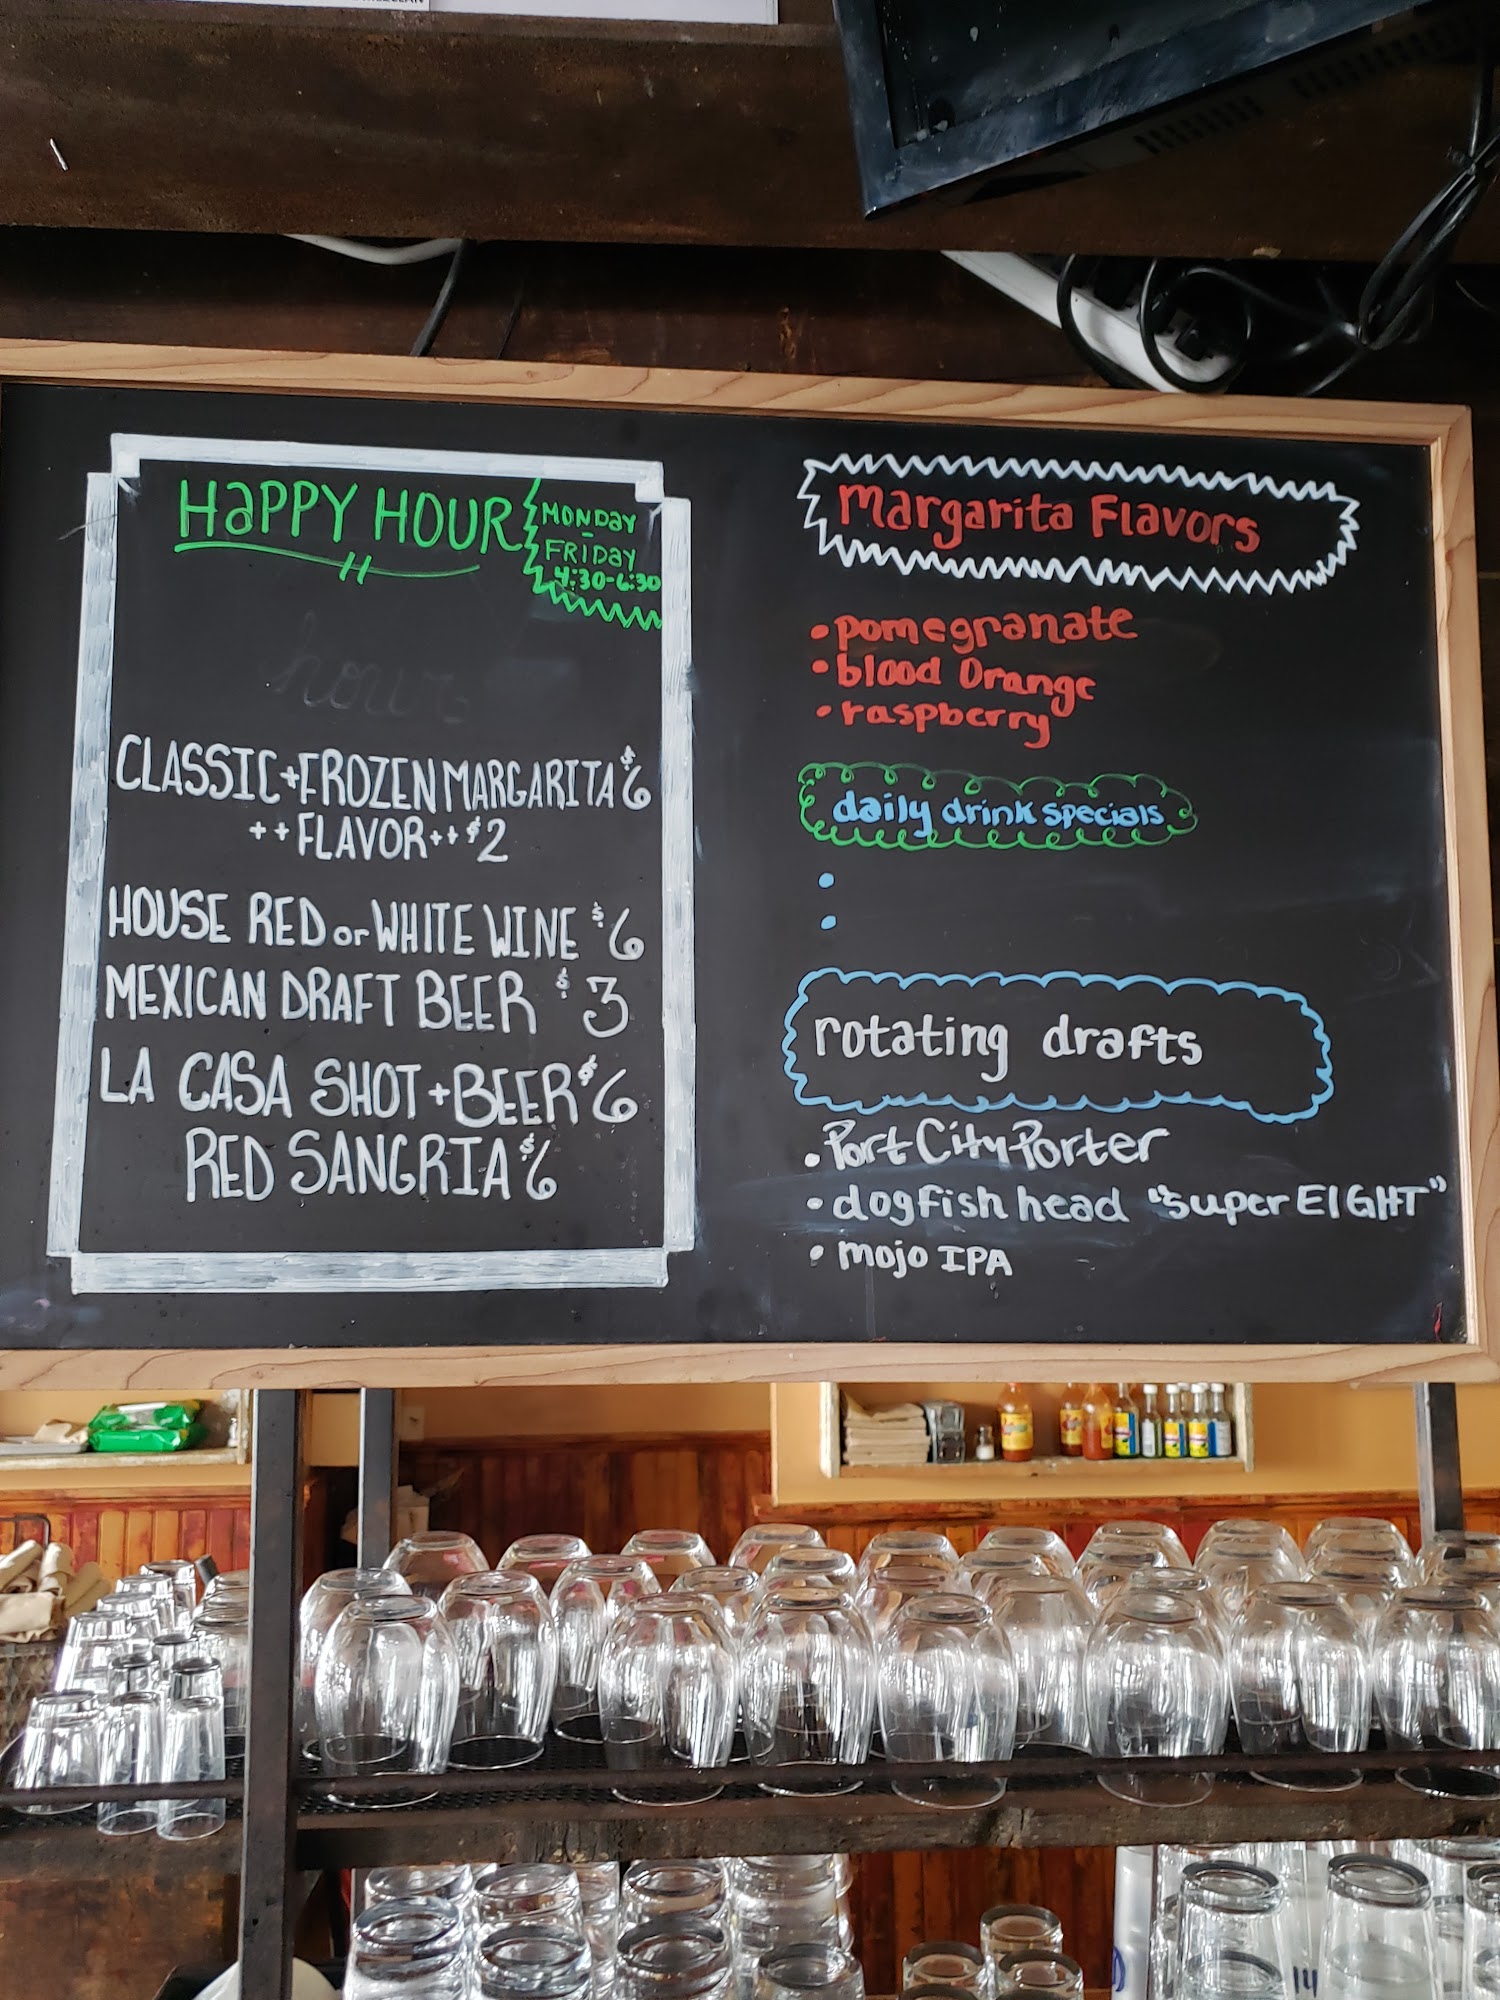 HaPPY HOUR
MONDaY
-
FRIDAY
4:30-6:30
hour
CLASSIC + FROZEN MARGARITA $6
++ FLAVOR ++ $2
HOUSE RED or WHITE WINE $6
MEXICAN DRAFT BEER $3
LA CASA SHOT + BEER $6
RED SANGRIA $6
Margarita Flavors
• pomegranate
• blood Orange
• raspberry
daily drink specials
•
•
rotating drafts
• Port City Porter
• dogfish head "super EIGHT"
• mojo IPA